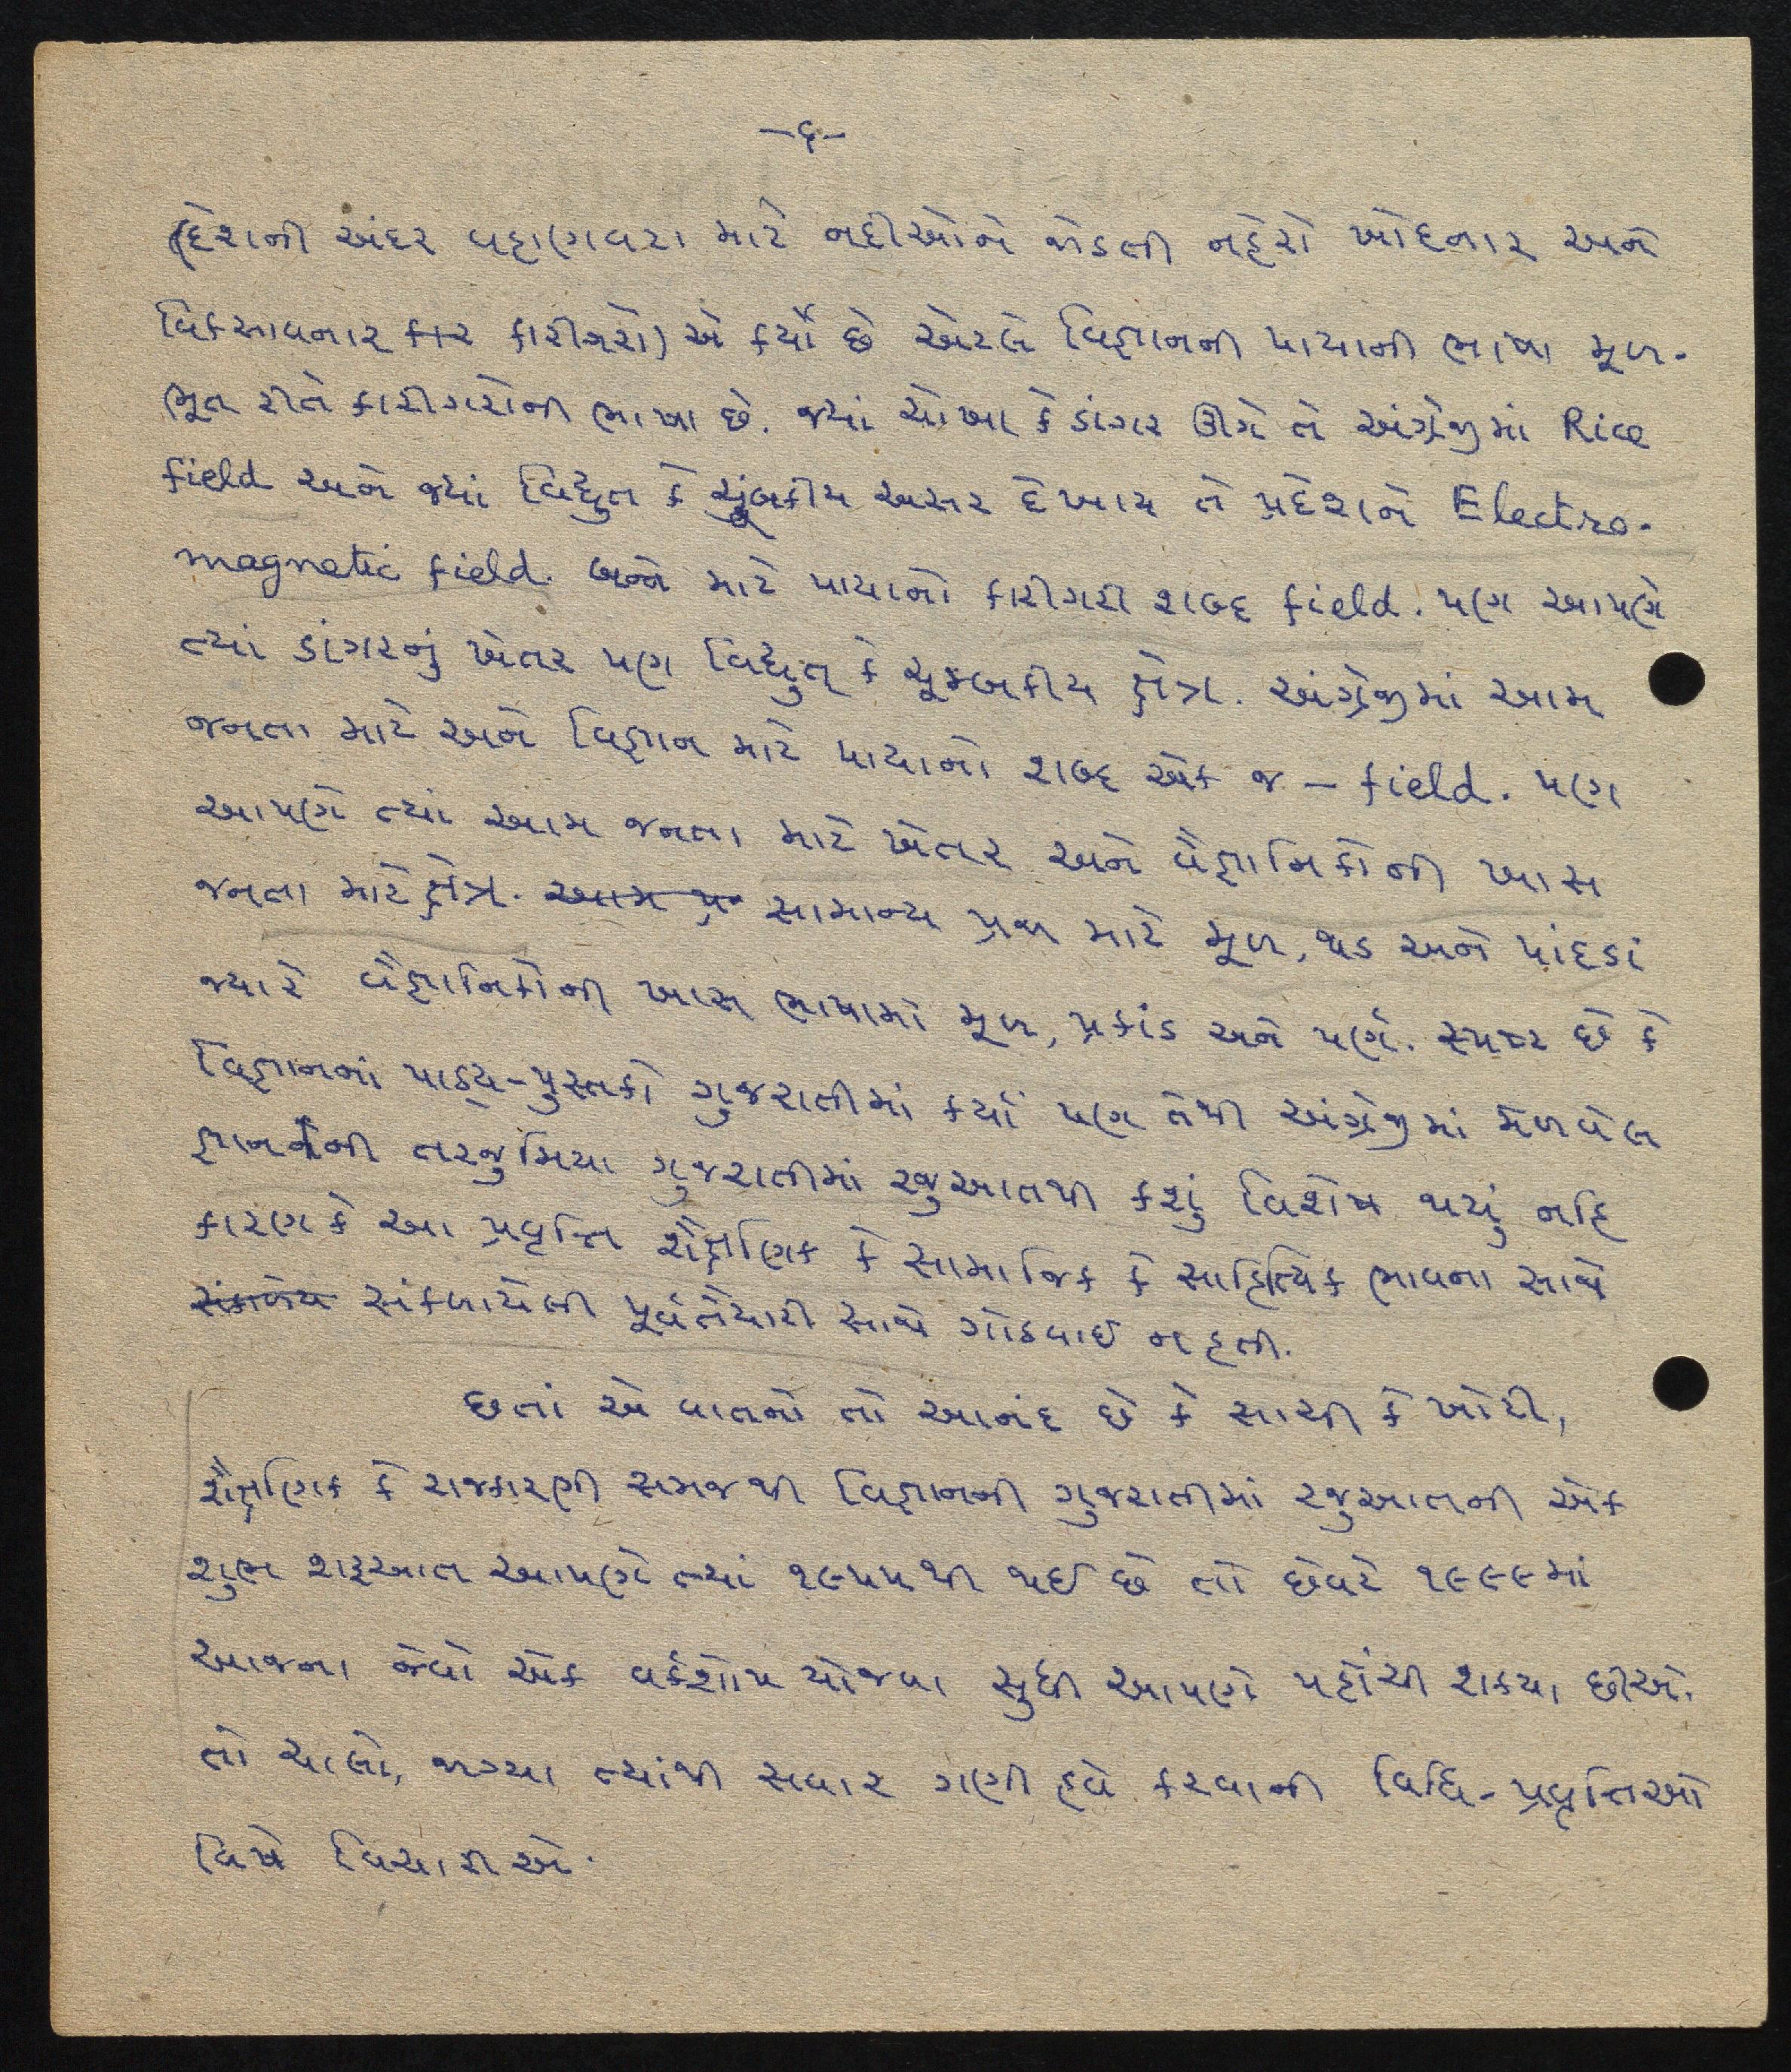 -૬-
(દેશની અંદર વહાણવટા માટે નદીઓને જોડતી નહેરો ખોદનાર અને
વિકસાવનાર કારીગરો) એ કર્યો છે એટલે વિજ્ઞાનની પાયાની ભાષા મૂળ-
ભૂત રીતે કારીગરોની ભાષા છે. જ્યાં ચોખા કે ડાંગર ઊગે તે અંગ્રેજીમાં Rice
field અને જ્યાં વિદ્યુત કે ચુંબકીય અસર દેખાય તે પ્રદેશને Electro-
magnetic field. બન્ને માટે પાયાનો કારીગરી શબ્દ field. પણ આપણે
ત્યાં ડાંગરનું ખેતર પણ વિદ્યુત્ કે ચૂમ્બકીય ક્ષેત્ર. અંગ્રેજીમાં આમ
જનતા માટે અને વિજ્ઞાન માટે પાયાનો શબ્દ એક જ - field. પણ
આપણે ત્યાં આમ જનતા માટે ખેતર અને વૈજ્ઞાનિકોની ખાસ
જનતા માટે ક્ષેત્ર. આમ પ્ર સામાન્ય પ્રજા માટે મૂળ, થડ અને પાંદડાં
જ્યારે વૈજ્ઞાનિકોની ખાસ ભાષામાં મૂળ, પ્રકાંડ અને પર્ણ. સ્પષ્ટ છે કે
વિજ્ઞાનનાં પાઠ્ય-પુસ્તકો ગુજરાતીમાં કર્યાં પણ તેથી અંગ્રેજીમાં મેળવેલ
જ્ઞાનની તરજુમિયા ગુજરાતીમાં રજુઆતથી કશું વિશેષ થયું નહિ
કારણ કે આ પ્રવૃત્તિ શૈક્ષણિક કે સામાજિક કે સાહિત્યિક ભાવના સાથે
સંકળાયેલી પૂર્વતૈયારી સાથે ગોઠવાઈ ન હતી.
છતાં એ વાતનો તો આનંદ છે કે સાચી કે ખોટી,
શૈક્ષણિક કે રાજકારણી સમજથી વિજ્ઞાનની ગુજરાતીમાં રજુઆતની એક
શુભ શરૂઆત આપણે ત્યાં ૧૯૫૫થી થઈ છે તો છેવટે ૧૯૯૯માં
આજના જેવો એક વર્કશોપ યોજવા સુધી આપણે પહોંચી શક્યા છીએ.
તો ચાલો, જાગ્યા ત્યાંથી સવાર ગણી હવે કરવાની વિધિ-પ્રવૃત્તિઓ
વિષે વિચારીએ.